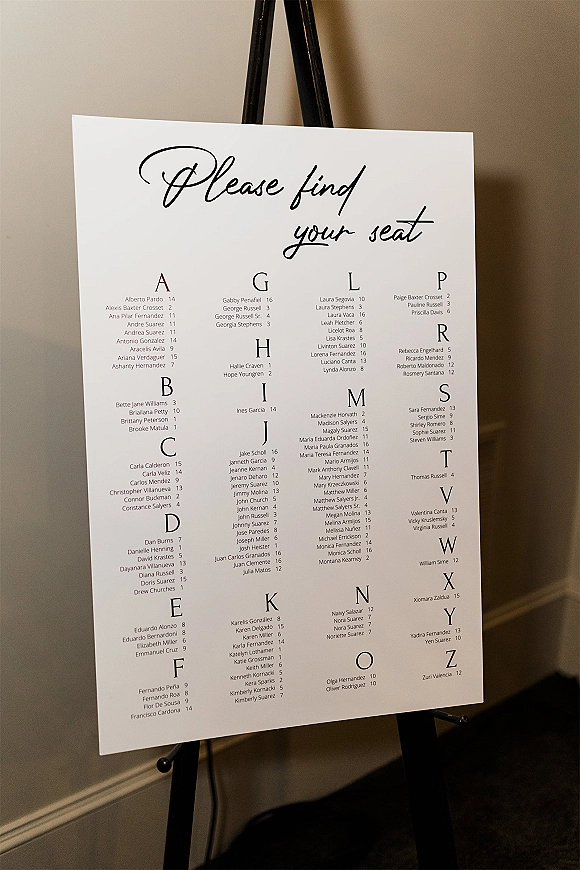 Please find
your seat
A
Alberto Pardo 14
Alexis Baxter Crosset 2
Ana Pilar Fernandez 11
Andre Suarez 11
Andrea Suarez 11
Antonio Gonzalez 14
Aracelis Avila 9
Ariana Verdaguer 15
Ashanty Hernandez 7
B
Bette Jane Williams 3
Briallana Petty 10
Brittany Peterson 1
Brooke Matula 1
C
Carla Calderon 15
Carla Veliz 14
Carlos Mendez 9
Christopher Villanueva 13
Connor Buckman 2
Constance Salyers 4
D
Dan Burns 7
Danielle Henning 1
David Krastes 5
Dayanara Villanueva 13
Diana Russell 3
Doris Suarez 15
Drew Churches 1
E
Eduardo Alonzo 8
Eduardo Bernardoni 8
Elizabeth Miller 6
Emmanuel Cruz 9
F
Fernando Peña 9
Fernando Roa 8
Flor De Sousa 9
Francisco Cardona 14
G
Gabby Penafiel 16
George Russell 3
George Russell Sr. 4
Georgia Stephens 3
H
Hallie Craven 1
Hope Youngren 2
I
Ines Garcia 14
J
Jake Scholl 16
Janneth Garcia 9
Jeanne Kernan 4
Jenaro Deharo 12
Jeremy Suarez 10
Jimmy Molina 13
John Church 5
John Kernan 4
John Russell 3
Johnny Suarez 7
Jose Paredes 8
Joseph Miller 6
Josh Heister 1
Juan Carlos Granados 16
Juan Clemente 16
Julia Matos 12
K
Karelis González 8
Karen Delgado 15
Karen Miller 6
Karla Fernandez 14
Katelyn Lothamer 1
Katie Grossman 1
Keith Miller 6
Kenneth Kornacki 5
Kera Sparks 2
Kimberly Kornacki 5
Kimberly Suarez 7
L
Laura Segovia 10
Laura Stephens 3
Laura Vaca 16
Leah Pletcher 6
Licelot Roa 8
Lisa Krastes 5
Livinton Suarez 10
Lorena Fernandez 16
Luciano Canta 13
Lynda Alonzo 8
M
Mackenzie Horvath 2
Madison Salyers 4
Magaly Suarez 15
Maria Eduarda Ordoñez 11
Maria Paula Granados 16
Maria Teresa Fernandez 14
Mario Armijos 11
Mark Anthony Claveli 11
Mary Hernandez 7
Mary Krzeczkowski 6
Matthew Miller 6
Matthew Salyers Jr. 4
Matthew Salyers Sr. 4
Megan Molina 13
Melina Armijos 15
Melissa Nuñez 11
Michael Errickson 2
Monica Fernandez 14
Monica Scholl 16
Montana Kearney 2
N
Naivy Salazar 12
Nora Suarez 7
Nora Suarez 7
Noriette Suarez 7
O
Olga Hernandez 10
Oliver Rodriguez 10
P
Paige Baxter Crosset 2
Pauline Russell 3
Priscilla Davis 6
R
Rebecca Engelhard 5
Ricardo Mendez 9
Roberto Maldonado 12
Rosmery Santana 12
S
Sara Fernandez 13
Sergio Sime 9
Shirley Romero 8
Sophie Suarez 11
Steven Williams 3
T
Thomas Russell 4
V
Valentina Canta 13
Vicky Kruslemsky 5
Virginia Russell 4
W
William Sime 12
X
Xiomara Zaldua 15
Y
Yadira Fernandez 13
Yen Suarez 10
Z
Zuri Valencia 12